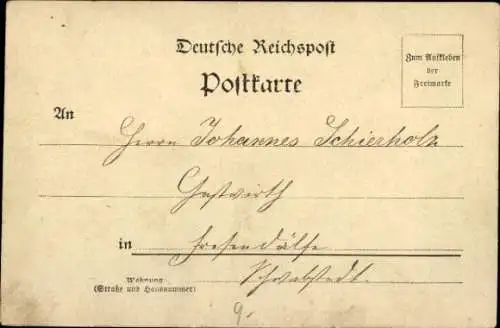 Deutsche Reichspost
Postkarte
Zum Aufkleben
der
Freimarke
An
Herrn Johannes Schierholz
Gastwirth
in
Schwabstedt.
Wohnung
(Straße und Hausnummer)
9.